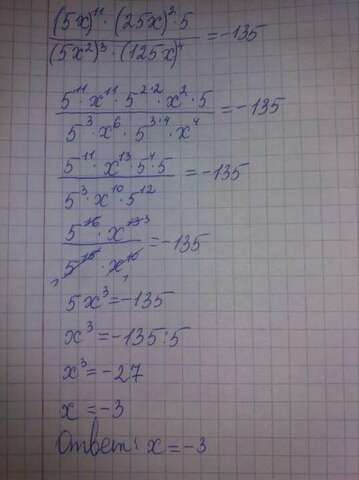 (5x)¹¹ · (25x)² · 5 / (5x²)³ · (125x)⁴ = -135
5¹¹ · x¹¹ · 5²·² · x² · 5 / 5³ · x⁶ · 5³·⁴ · x⁴ = -135
5¹¹ · x¹³ · 5⁴ · 5 / 5³ · x¹⁰ · 5¹² = -135
5¹⁶ · x¹³ ³ / 5¹⁵ · x¹⁰ = -135
1 1
5x³ = -135
x³ = -135 : 5
x³ = -27
x = -3
Ответ: x = -3